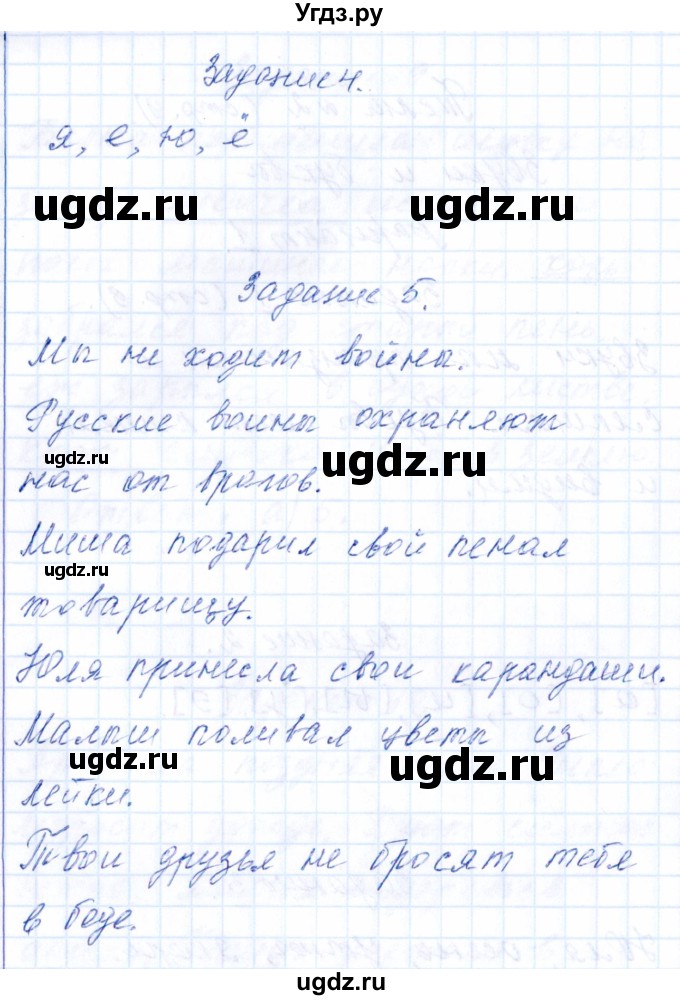 Угдз.ру
Задание 4.
я, е, ю, ё
ugdz.ru ugdz.ru
Задание 5.
Мы не ходит войны.
Русские воины охраняют
ugdz.ru ugdz.ru
нас от врагов.
Миша подарил свой пенал
ugdz.ru
товарищу.
Юля принесла свои карандаши.
Малыш поливал цветы из
ugdz.ru ugdz.ru
лейки.
Твои друзья не бросят тебя
в беде.
ugdz.ru